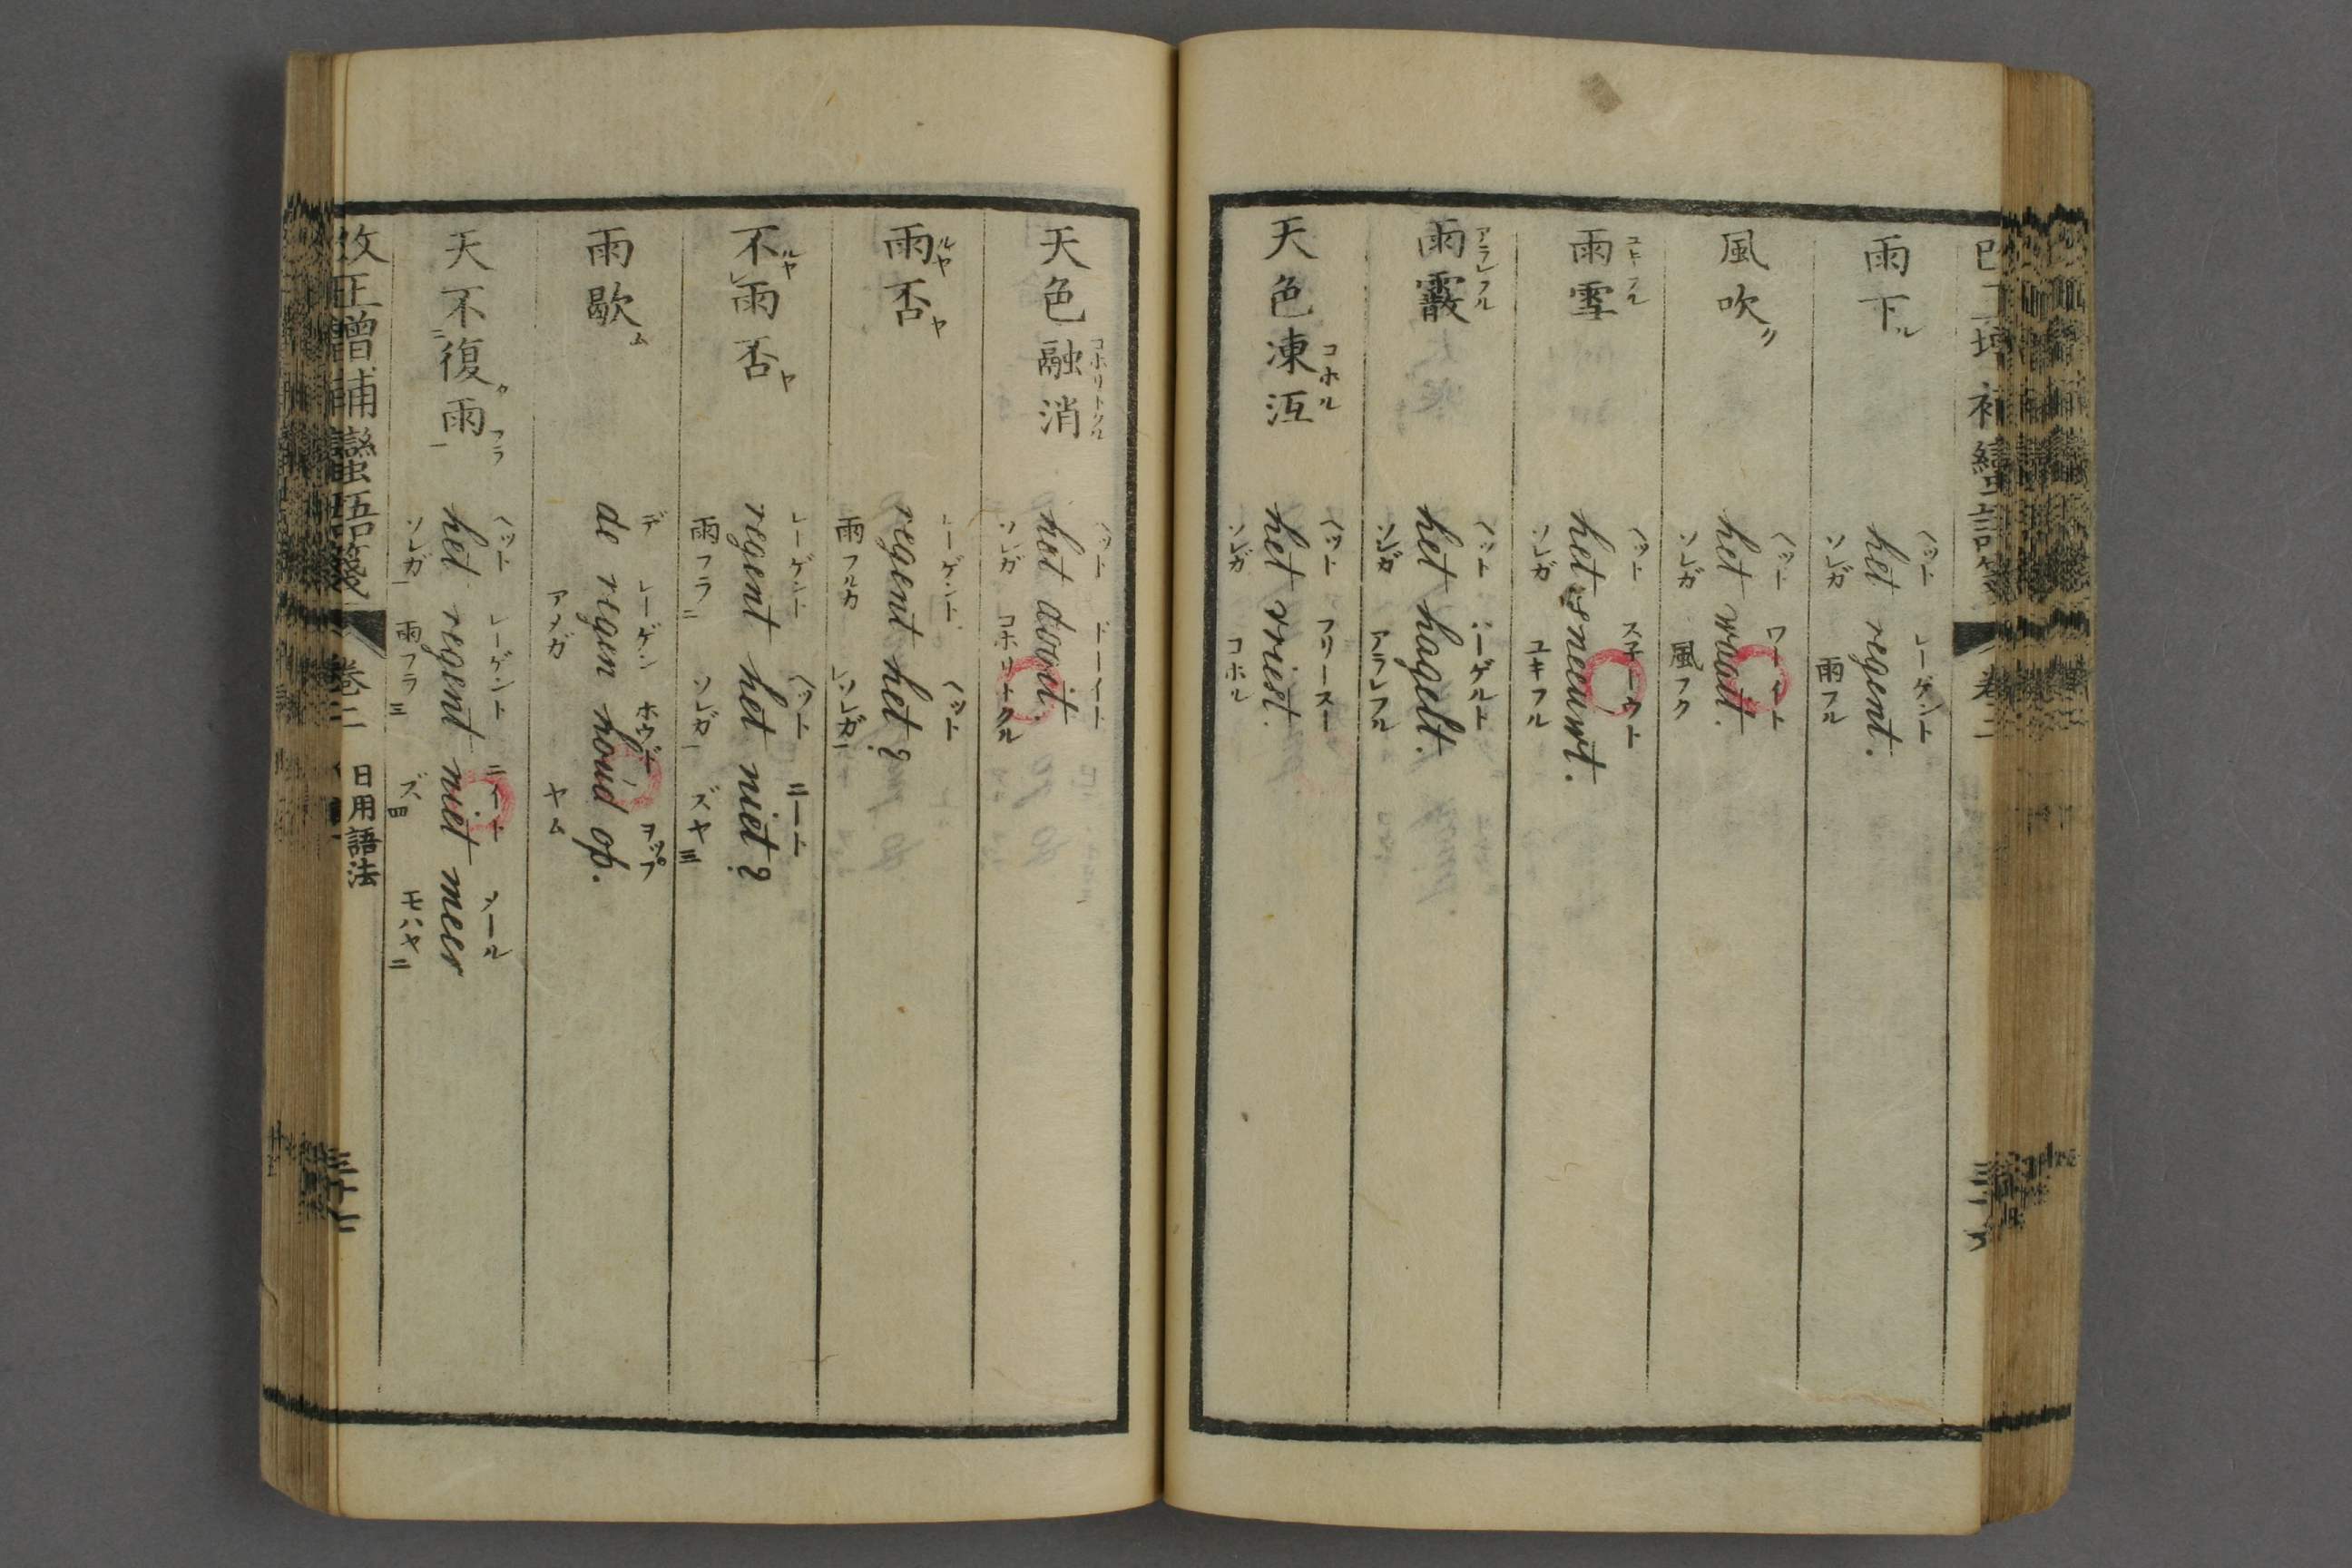 雨下ル
ヘット レーゲント
het regent.
ソレガ 雨フル
風吹ク
ヘット ワーイト
het waait.
ソレガ 風フク
雨雪 ユキフル
ヘット スネーウト
het sneeuwt.
ソレガ ユキフル
雨霰 アラレフル
ヘット ハーゲルト
het hagelt.
ソレガ アラレフル
天色凍沍 コホル
ヘット フリースー
het vriest.
ソレガ コホル
天色融消 コホリトクル
ヘット ドーイト
het dooit
ソレガ コホリトクル
雨ルヤ否ヤ
レーゲント ヘット
regent het?
雨フルカ ソレガ一
不ルヤレ雨否ヤ
レーゲント ヘット ニート
regent het niet?
雨フラ二 ソレガ一 ズヤ三
雨歇ム
デ レーゲン ホウド ヲップ
de regen houd op.
アメガ ヤム
天不二復タ雨フラ一
ヘット レーゲント ニイト メール
het regent niet meer
ソレガ一 雨フラ三 ズ四 モハヤ二
改正増補蠻語箋 卷二 日用語法 三十七